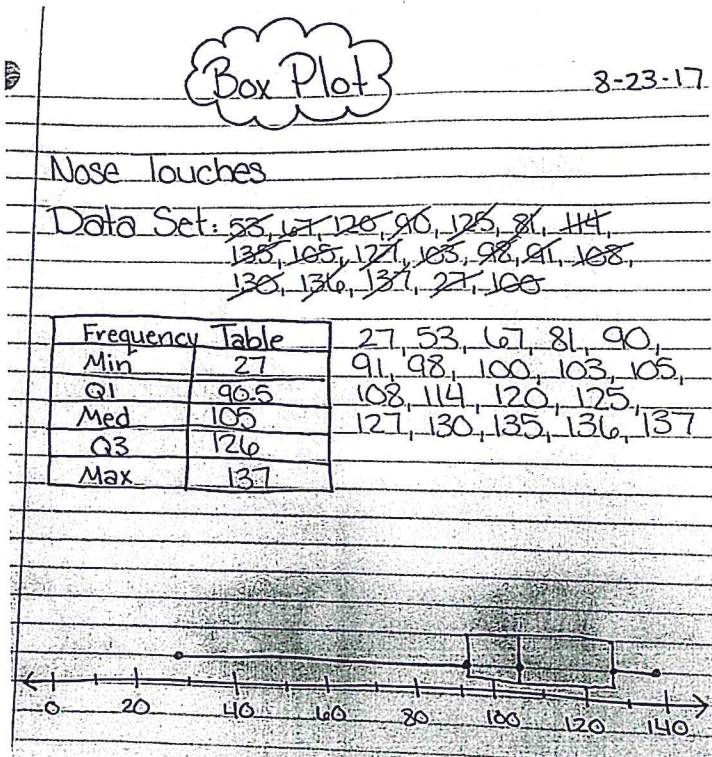 Box Plot
8-23-17
Nose Touches
Data Set: 53, 67, 120, 90, 125, 81, 114,
135, 105, 127, 103, 98, 91, 108,
130, 136, 137, 27, 100
Frequency Table
Min 27
Q1 90.5
Med 105
Q3 126
Max 137
27, 53, 67, 81, 90,
91, 98, 100, 103, 105,
108, 114, 120, 125,
127, 130, 135, 136, 137
0 20 40 60 80 100 120 140